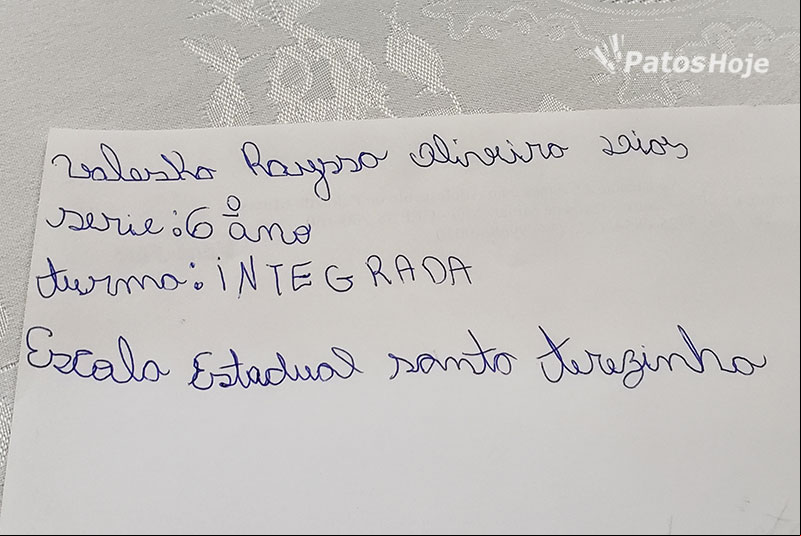 PatosHoje
Valeska Rayssa Oliveira
serie: 6º ano
turma: INTEGRADA
Escola Estadual santa terezinha